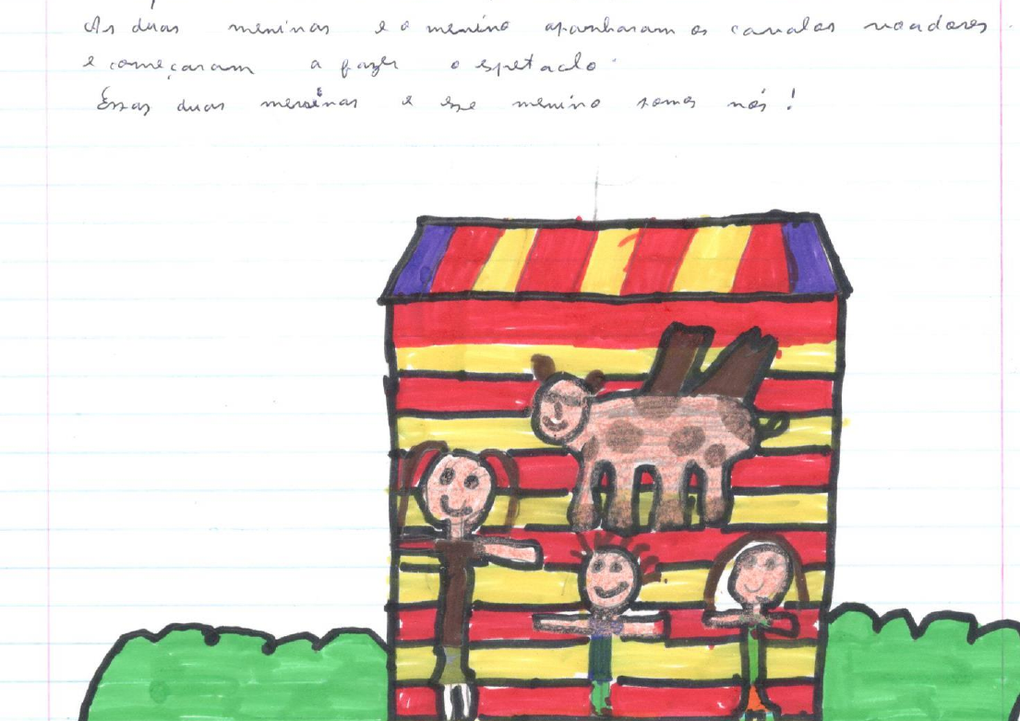 As duas meninas e o menino apanharam os cavalos voadores
e começaram a fazer o espetaclo.
Essas duas meninas e esse menino somos nós!